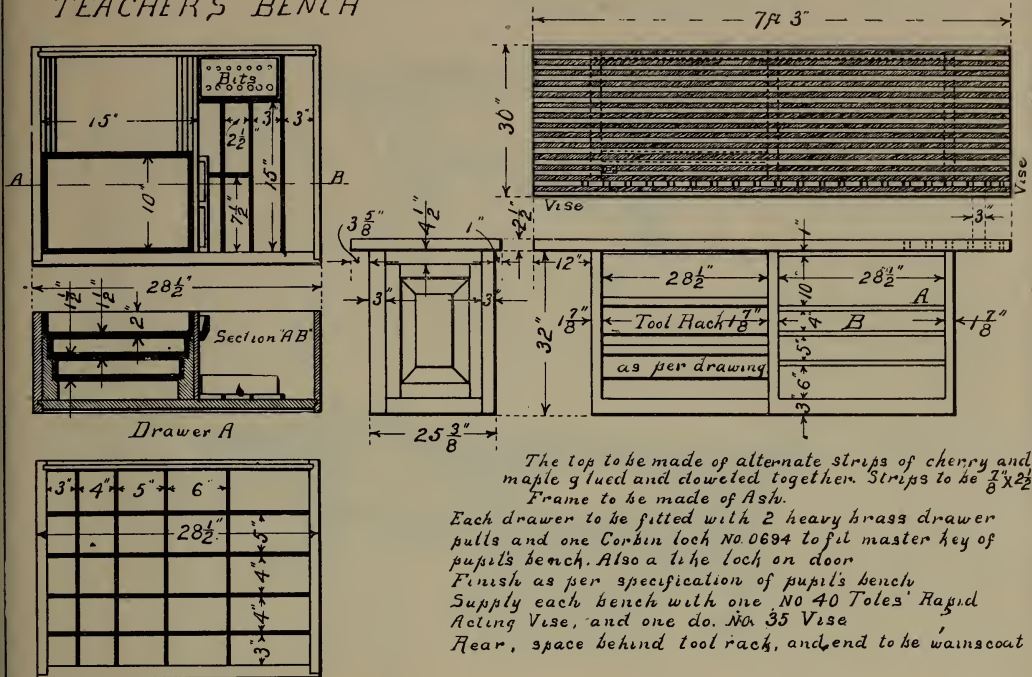 TEACHER'S BENCH
7ft 3"
Bits
15"
2½"
3"
3"
15"
10"
7½"
A
B
28½"
1½"
1½"
2"
Section "AB"
Drawer A
30"
Vise
Vise
3"
3⅝"
4½"
1"
2½"
3"
3"
32"
25⅜"
12"
1"
28½"
28½"
10"
A
1⅞"
Tool Rack
1⅞"
4"
B
1⅞"
5"
as per drawing
6"
3"
3"
4"
5"
6"
28½"
5"
4"
4"
3"
The top to be made of alternate strips of cherry and
maple glued and doweled together. Strips to be ⅞"x2½
Frame to be made of Ash.
Each drawer to be fitted with 2 heavy brass drawer
pulls and one Corbin lock No. 0694 to fit master key of
pupil's bench. Also a like lock on door
Finish as per specification of pupil's bench
Supply each bench with one No 40 Toles' Rapid
Acting Vise, and one do. No. 35 Vise
Rear, space behind tool rack, and end to be wainscoat